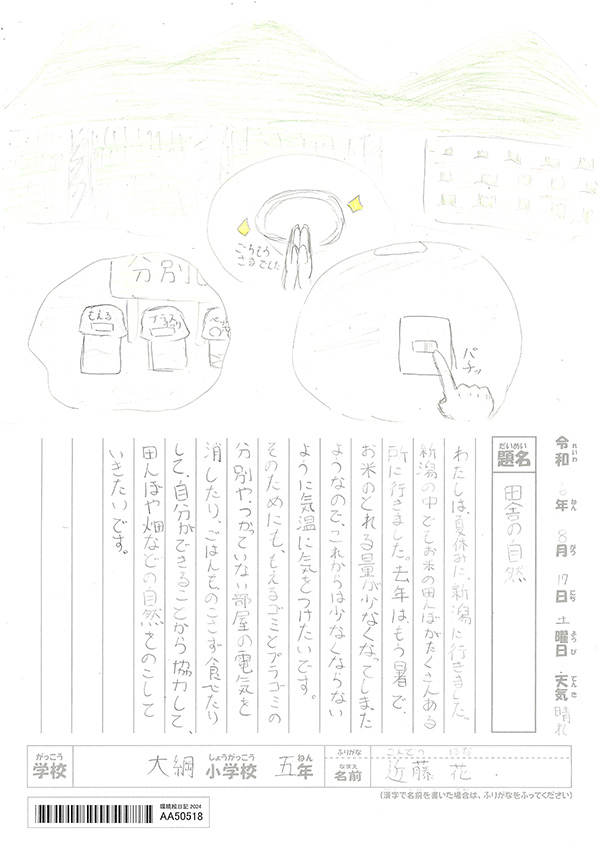 分別
もえる
プラごみ
ペット
ごちそう
さまでした
パチッ
令和 6年 8月 17日 土曜日 天気 晴れ
れいわ ねん がつ にち ようび てんき
だいめい
題名
田舎の自然
わたしは、夏休みに、新潟に行きました。
新潟の中でもお米の田んぼがたくさんある
所に行きました。去年は、もう暑で、
お米のとれる量が少なくなってしまった
ようなので、これからは少なくならない
ように気温に気をつけたいです。
そのためにも、もえるゴミとプラゴミの
分別やつかっていない部屋の電気を
消したり、ごはんをのこさず食べたり
して、自分ができることから協力して、
田んぼや畑などの自然をのこして
いきたいです。
がっこう しょうがっこう ねん ふりがな こんどう にな
学校 大綱 小学校 五年 なまえ 名前 近藤 花
(漢字で名前を書いた場合は、ふりがなをふってください)
環境絵日記 2024
AA50518